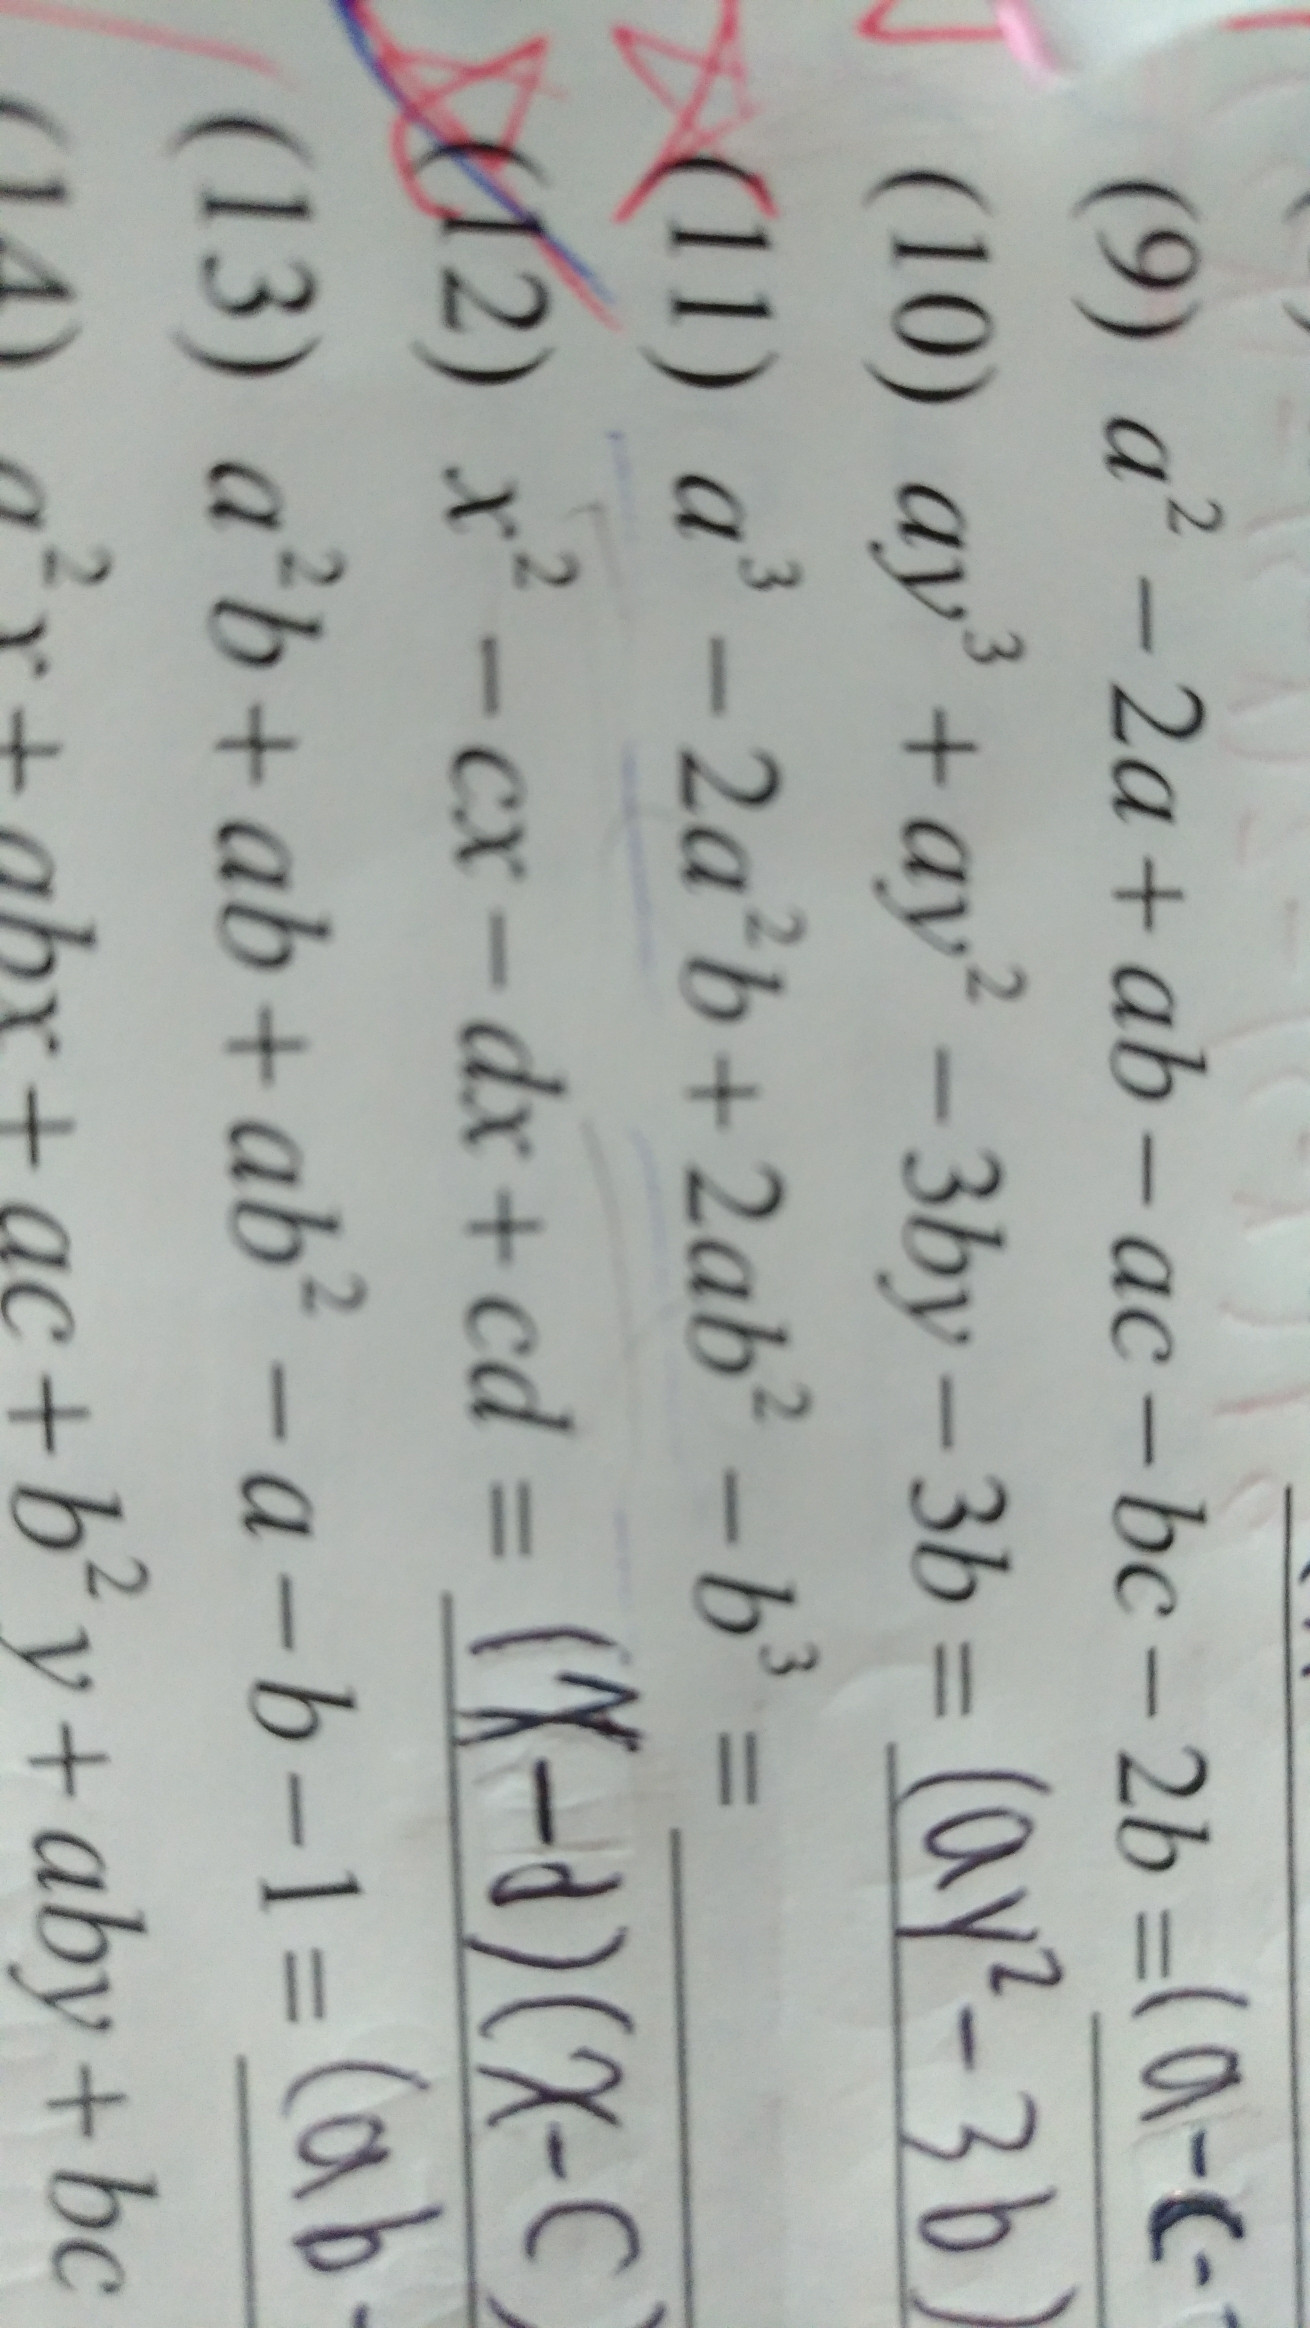 (9) a² − 2a + ab − ac − bc − 2b = (a - c -
(10) ay³ + ay² − 3by − 3b = (ay² - 3b)
(11) a³ − 2a²b + 2ab² − b³ =
(12) x² − cx − dx + cd = (x - d)(x - c)
(13) a²b + ab + ab² − a − b − 1 = (ab -
(14) a²x + abx + ac + b²y + aby + bc